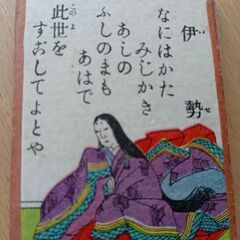 伊勢
なにはかた
みじかき
あしの
ふしのまも
あはで
此世を
すぐしてよとや